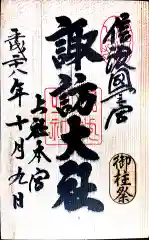 信濃國一宮
諏訪大社
上社本宮
平成二十八年十月九日
御柱祭